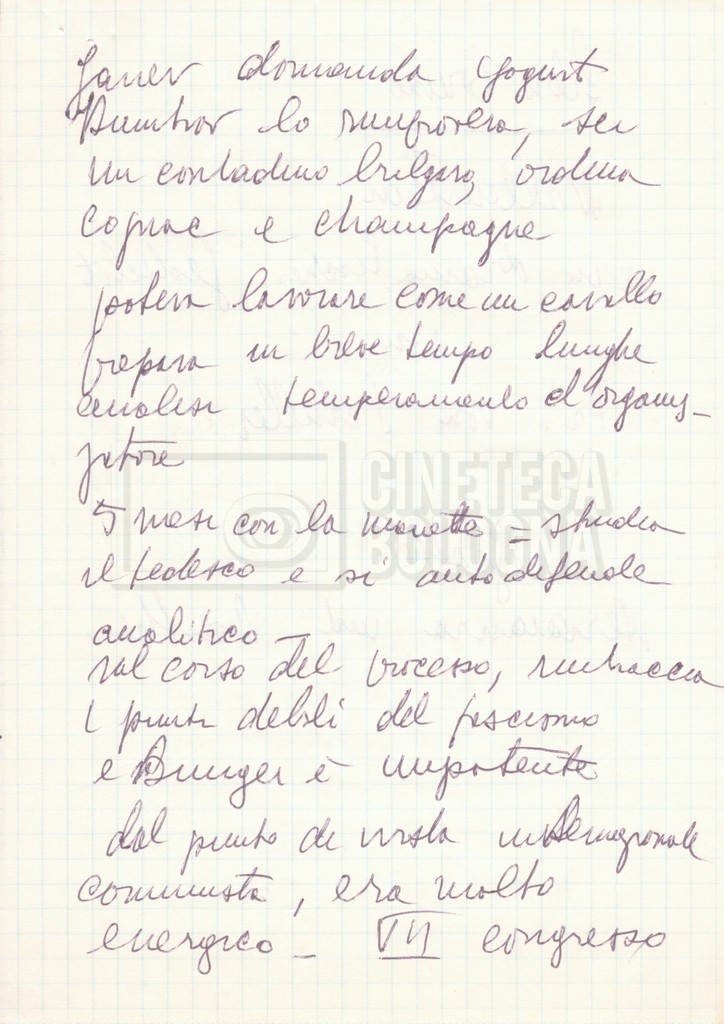 Janev domanda Yogurt
Dimitrov lo rimprovera, sei
un contadino bulgaro, ordina
cognac e champagne
poteva lavorare come un cavallo
prepara in breve tempo lunghe
analisi temperamento d'organiz-
zatore
CINETECA
BOLOGNA
5 mesi con la = studia
il tedesco e si autodifende
analitico –
nel corso del processo, rintraccia
i punti deboli del fascismo
e Bunger è impotente
dal punto di vista internazionale
comunista, era molto
energico – VII congresso